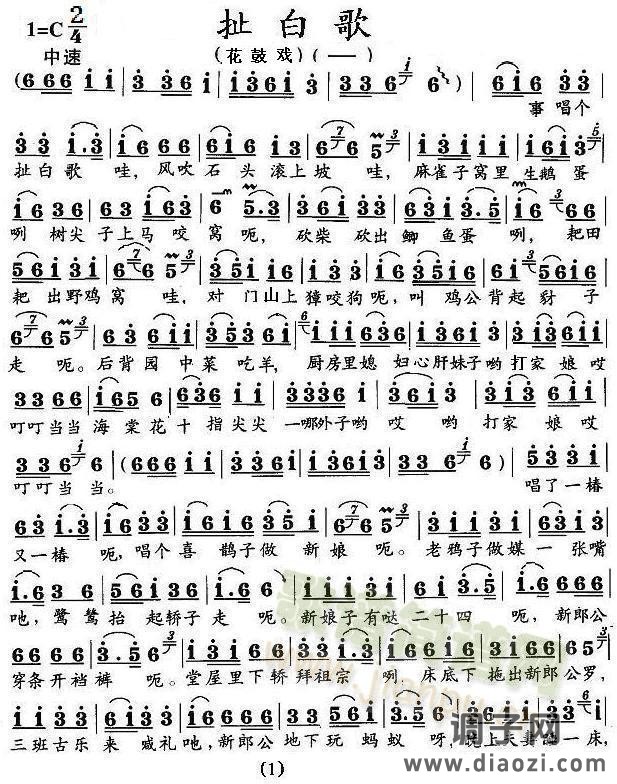 扯白歌
1=C 2/4
中速
(花鼓戏)(一)
事唱个
扯白歌 哇,风吹石头滚上坡 哇,麻雀子窝里生鹅蛋
咧树尖子上马咬窝呃,砍柴砍出鲫鱼蛋咧,耙田
耙出野鸡窝 哇,对门山上獐咬狗呃,叫鸡公背起豺子
走 呃。后背园中菜吃羊,厨房里媳妇心肝妹子哟打家娘哎
叮叮当当海棠花十指尖尖一哪外子哟哎哟打家娘哎
叮叮当当。 唱了一椿
又一椿 呃,唱个喜鹊子做新娘呃。老鸦子做媒一张嘴
吔,鹭鸶抬起轿子走呃。新娘子有哒二十四呃,新郎公
穿条开裆裤 呃。堂屋里下轿拜祖宗咧,床底下拖出新郎公罗,
三班古乐来 礼吔,新郎公地下玩蚂蚁呀,晚上夫妻 一床,
(1)
歌谱简谱网
www.jianpu.cn
调子网
www.diaozi.com